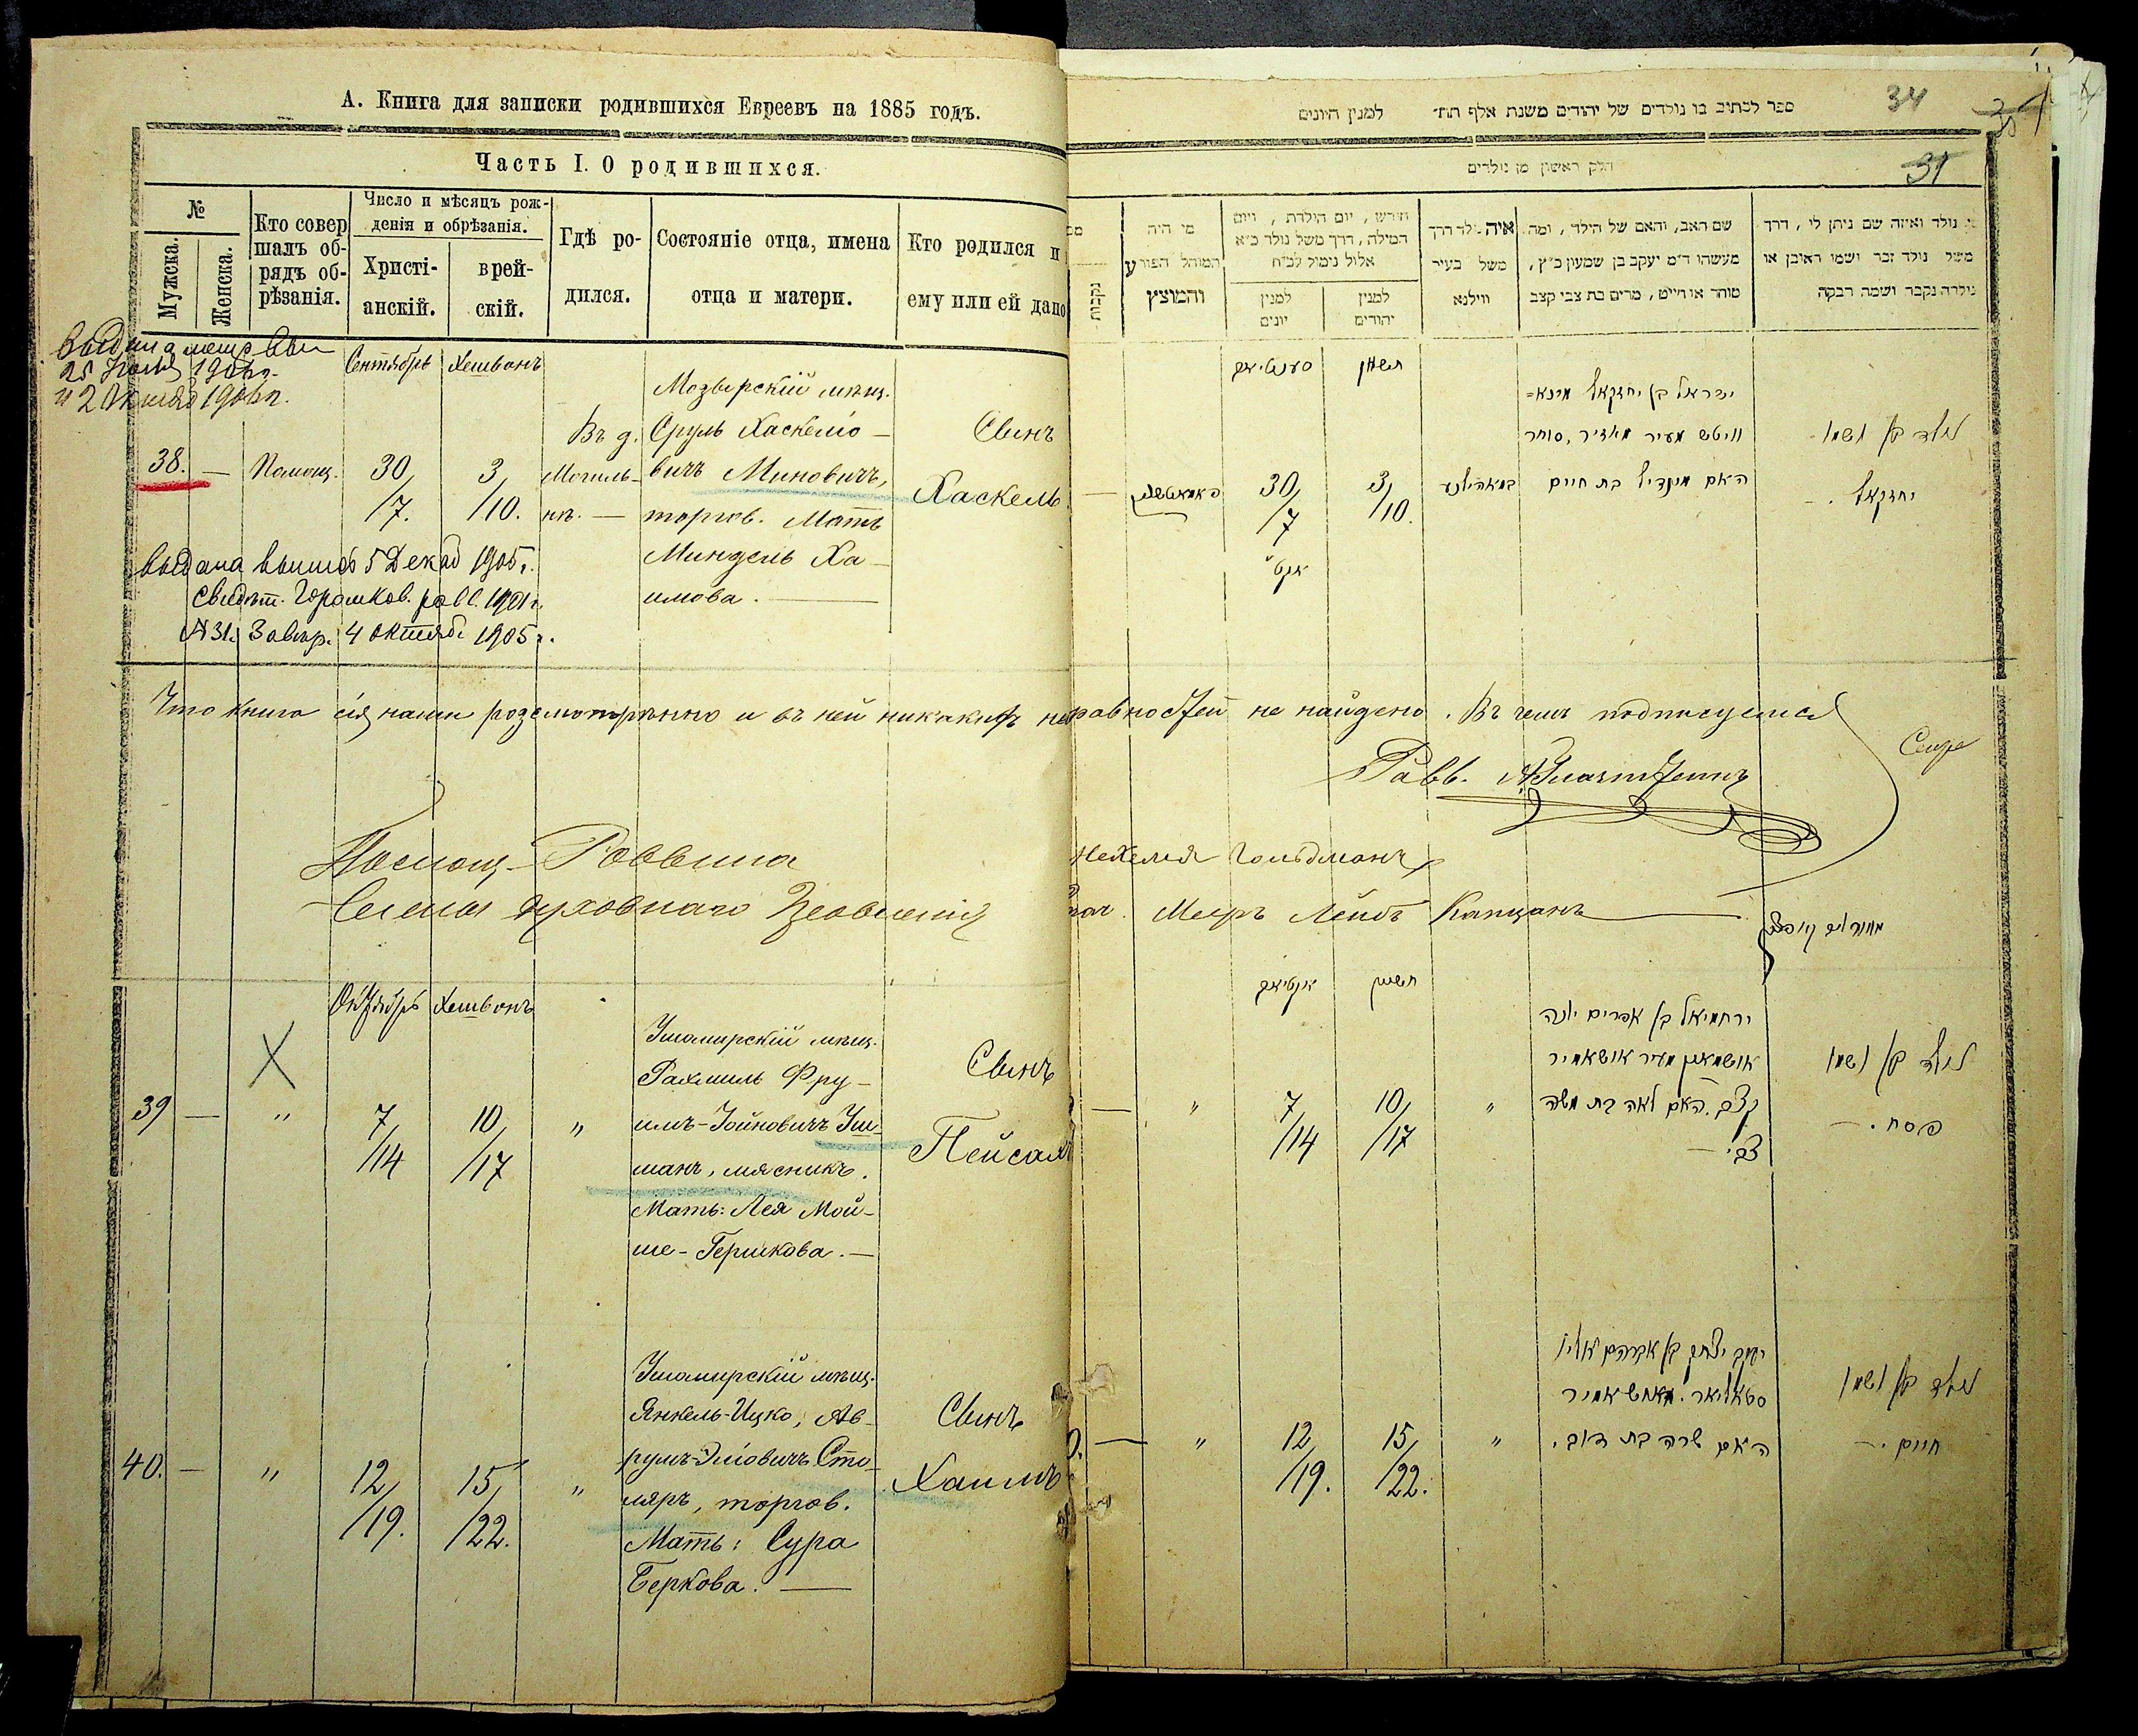 А. Книга для записки родившихся Евреевъ на 1885 годъ.
Часть I. О родившихся.
№
Мужска.
Женска.
Кто совер
шалъ об-
рядъ об-
рѣзанія.
Число и мѣсяцъ рож-
денія и обрѣзанія.
Христі-
анскій.
врей-
скій.
Гдѣ ро-
дился.
Состояніе отца, имена
отца и матери.
Кто родился и
ему или ей дано
25 1906 г.
1906 г.
Сентябрь
Хешвонъ
38. —
Помощ.
30/7.
3/10.
Въ д.
Могиль-
нѣ. —
Мозырскій мѣщ.
Сруль Хаскеліо-
вичъ Миновичъ,
торгов. Мать
Миндель Ха-
имова. —
Сынъ
Хаскель
Выдана 5 Декаб 1905 г.
Свидѣт. Горошков. равв. 1901 г.
№ 31. 4 октяб. 1905 г.
Что книга сія нами розсмотрѣнно и въ ней никакихъ
Помощ. Роввина
Члены духовнаго Провленія
Октябрь
Хешвонъ
39 —
"
7/14
10/17
"
Ушомирскій мѣщ.
Рахмиль Фру-
имъ-Іойновичъ Уш-
манъ, мясникъ.
Мать: Лея Мой-
ше-Гершкова. —
Сынъ
Пейсахъ
40. —
"
12/19.
15/22.
"
Ушомирскій мѣщ.
Янкель-Ицко, Ав-
румъ-Эліовичъ Сто-
ляръ, торгов.
Мать: Сура
Беркова. —
Сынъ
Хаимъ
ספר לכתיב בו נולדים של יהודים משנת אלף תת־ למנין היונים
34
31
חלק ראשון מן נולדים
נקבות
מי היה
המוהל הפורע
והמוצץ
חודש, יום הולדת, ויום
המילה, דרך משל נולד כ״א
אלול נימול לכ״ח
למנין
יונים
למנין
יהודים
איה ילד דרך
משל בעיר
ווילנא
שם האב, והאם של הילד, ומה
מעשהו ד״מ יעקב בן שמעון כ״ץ,
סוחר או חייט, מרים בת צבי קצב
נולד ואיזה שם ניתן לו, דרך
משל נולד זכר ושמו ראובן או
נולדה נקבה ושמה רבקה
חשון
30/7
3/10.
ישראל בן יחזקאל מינא=
וויטש מעיר מאזיר, סוחר
האם מינדיל בת חיים
נולד בן ושמו
יחזקאל. —
не найдено. Въ чемъ подписуемся
Равв.
Нехемія Гольдманъ
Меиръ Лейбъ Капцанъ
חשון
" 7/14
10/17
"
ירחמיאל בן אפרים יונה
אושמאן מעיר אושאמיר
קצב. האם לאה בת משה
צבי. —
נולד בן ושמו
פסח. —
" 12/19.
15/22.
"
יעקב יצחק בן אברהם אליו
האם שרה בת דוב.
נולד בן ושמו
חיים. —